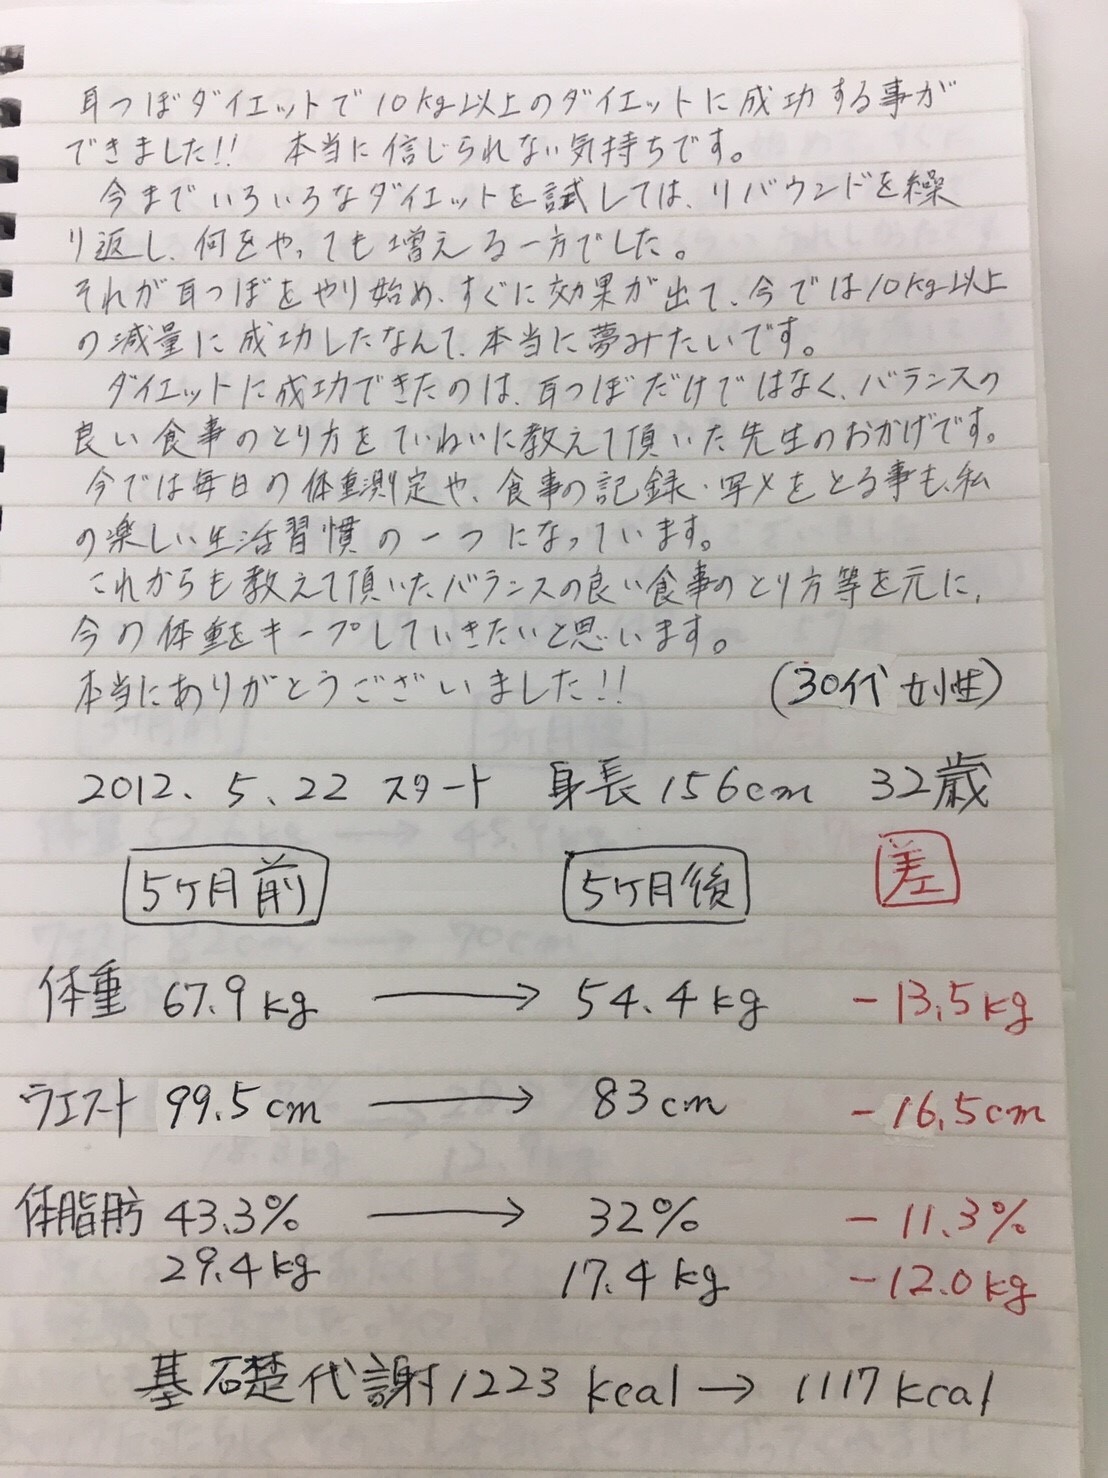 耳つぼダイエットで10kg以上のダイエットに成功する事が
できました!! 本当に信じられない気持ちです。
今までいろいろなダイエットを試しては、リバウンドを繰
り返し、何をやっても増える一方でした。
それが耳つぼをやり始め、すぐに効果が出て、今では10kg以上
の減量に成功したなんて、本当に夢みたいです。
ダイエットに成功できたのは、耳つぼだけではなく、バランスの
良い食事のとり方をていねいに教えて頂いた先生のおかげです。
今では毎日の体重測定や、食事の記録・写メをとる事も、私
の楽しい生活習慣の一つになっています。
これからも教えて頂いたバランスの良い食事のとり方等を元に、
今の体重をキープしていきたいと思います。
本当にありがとうございました!! (30代 女性)
2012.5.22 スタート 身長156cm 32歳
5ヶ月前 5ヶ月後 差
体重 67.9kg → 54.4kg -13.5kg
ウエスト 99.5cm → 83cm -16.5cm
体脂肪 43.3% → 32% -11.3%
29.4kg 17.4kg -12.0kg
基礎代謝1223kcal→1117kcal